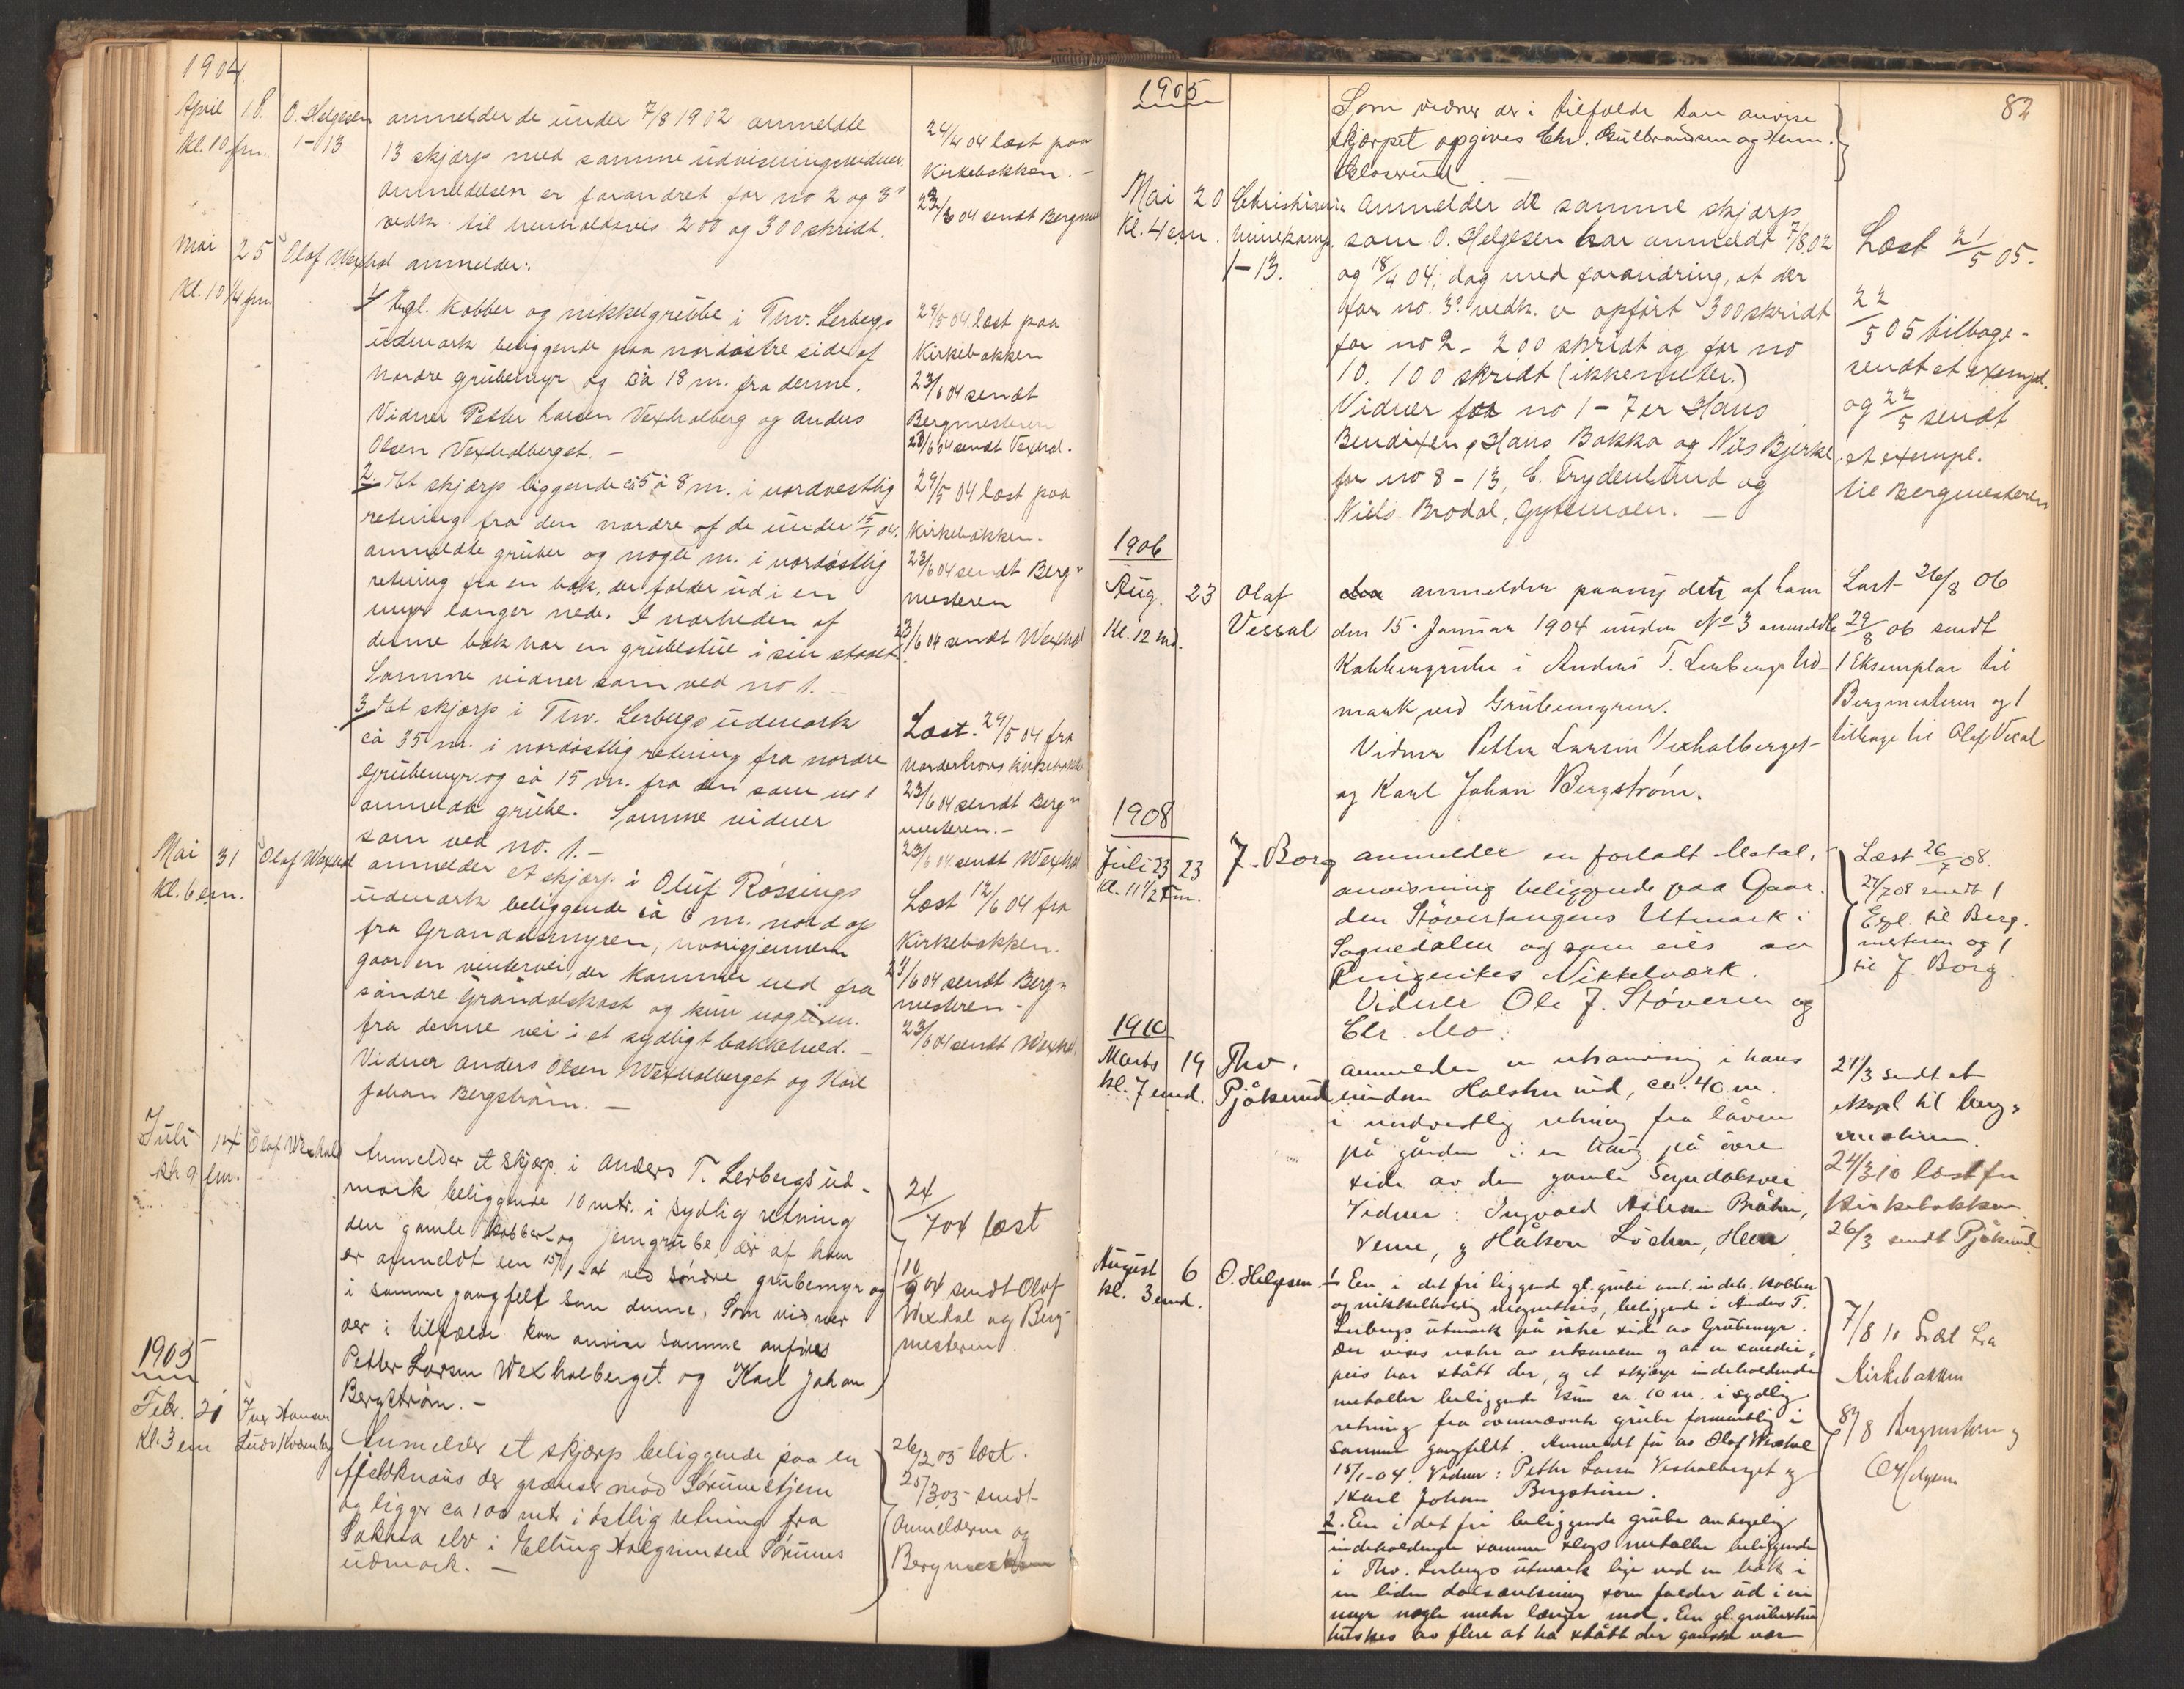 1904.
April 18. O. Helgesen anmelder de under 7/8 1902 anmeldte
Kl. 10 fm. 1-13 13 skjærp med samme udvisningsvidner.
anmeldelsen er forandret for no 2 og 3s
vedk. til henholdsvis 200 og 300 skridt.
24/4 04 læst paa
Kirkebakken. -
23/6 04 sendt Bergme
Mai 25 Olaf Wexhal anmelder:
Kl. 10 1/4 fm
1/ Et gl. kobber og nikkelgrube i Thv. Lerbergs
udmark beliggende paa nordöstre side af
nordre grubemyr og ca 18 m. fra denne.
Vidner Petter Larsen Vexhalberg og Anders
Olsen Vexhalberget. -
29/5 04 læst paa
Kirkebakken
23/6 04 sendt
Bergmesteren
23/6 04 sendt Vexhal.
2. Et skjærp liggende ca 5 à 8 m. i nordvestlig
retning fra den nordre af de under 15/1 04.
anmeldte gruber og nogle m. i nordöstlig
retning fra en bæk, der falder ud i en
myr længer nede. I nærheden af
denne bæk har en grubestue i sin staaet
Samme vidner som ved no 1. -
29/5 04 læst paa
Kirkebakken.
23/6 04 sendt Berg"
mesteren
23/6 04 sendt Wexhal
3. Et skjærp i Thv. Lerbergs udmark
ca 35 m. i nordöstlig retning fra nordre
Grubemyr og ca 15 m. fra den som no 1
anmeldte grube. Samme vidner
som ved no. 1. -
Læst. 29/5 04 fra
Norderhovs kirkebakke
23/6 04 sendt Berg"
mesteren. -
23/6 04 sendt Wexhal
Mai 31 Olaf Wexhal anmelder et skjærp i Oluf Røssings
Kl. 6 em. udmark beliggende ca 6 m. nord op
fra Grandalsmyren, hvorigjennem
gaar en vintervei, der kommer ned fra
söndre Grandalskast og kun nogle m.
fra denne vei i et sydligt bakkeheld. -
Vidner Anders Olsen Wexhalberget og Karl
Johan Bergström. -
Læst 12/6 04 fra
Kirkebakken.
23/6 04 sendt Berg"
mesteren -
23/6 04 sendt Wexhal
Juli 14 Olaf Wexhal Anmelder et skjærp i Anders T. Lerbergs ud-
kl. 9 fm. mark beliggende 10 mtr. i sydlig retning
den gamle kobber- og jerngrube, der af ham
er anmeldt den 15/1-04 ved söndre grubemyr og
i samme gangfelt som denne. Som vidner
der i tilfælde kan anvise samme anføres
Petter Larsen Wexhalberget og Karl Johan
Bergström. -
24/7 04 læst
10/9 04 sendt Olaf
Wexhal og Berg-
mesteren.
1905
Febr. 21 Iver Hansen
Kl. 3 em Ludv. Kvernberg Anmelder et skjærp beliggende paa en
fjeldknaus der grænser mod Sørumstjern
og ligger ca 100 mtr i östlig retning fra
Sokna elv i Elling Halgrimsen Sørums
udmark. -
26/2 05 læst.
25/3 05 sendt
Anmelderne og
Bergmesteren
1905
82
Som vidner der i tilfælde kan anvise
skjærpet opgives Chr. Gulbrandsen og Henn.
Mai 20 Christiania Anmelder de samme skjærp
Kl. 4 em. minekomp. som O. Helgesen har anmeldt 7/8 02
1-13. og 18/4 04, dog med forandring, at der
for no. 3s vedk. er opfört 300 skridt
for no 2 - 200 skridt og for no
10. 100 skridt (ikke meter.)
Vidner for no 1-7 er Hans
Bendixen, Hans Bakka og Nils Bjerke,
for no 8-13, C. Frydenlund og
Niels Brodal, Gyttemoen. -
Læst 21/5 05.
22/5 05 tilbage-
sendt et exempl.
og 22/5 sendt
et exempl.
til Bergmesteren
1906
Aug. 23 Olaf anmelder paany det af ham
Kl. 12 md. Vexsal den 15. Januar 1904 under No 3 anmeldte
Kobbergrube i Anders T. Lerbergs Ud-
mark ved Grubemyren.
Vidner Petter Larsen Vexhalberget
og Karl Johan Bergström.
Læst 26/8 06
29/8 06 sendt
1 Eksemplar til
Bergmesteren og 1
tilbage til Olaf Vexal
1908
Juli 23 23 J. Borg anmelder en forladt Metal-
Kl. 11 1/2 Fm. anvisning beliggende paa Gaar-
den Støvertangens Utmark i
Sognedalen og som eies av
Ringerikes Nikkelværk.
Vidner Ole J. Støveren og
Chr. Mo.
Læst 26/7 08.
27/7 08 sendt 1
Expl. til Berg-
mesteren og 1
til J. Borg.
1910
Marts 19 Thv. anmelder en ertsanvisning i hans
Kl. 7 emd. Pjåkerud eiendom Halstenrud, ca. 40 m.
i nordvestlig retning fra låven
på gården i en haug på övre
side av den gamle Sognedalsvei
Vidner: Ingvald Aslesen Bråten,
Veme, og Håkon Löchen, Hen.
21/3 sendt et
ekspl. til berg-
mesteren.
24/3 10 læst fra
Kirkebakken
26/3 sendt Pjåkerud
August 6 O. Helgesen. 1 En i det fri liggende gl. grube ant. indeh. kobber
kl. 3 emd. og nikkelholdig magnetkis, beliggende i Anders T.
Lerbergs utmark på östre side av Grubemyr.
Der vises rester av ertsmalm og at en smedie-
peis har stått der, og et skjærp indeholdende
metaller beliggende kun ca. 10 m. i sydlig
retning fra ovennævnte grube formentlig i
samme gangfeldt. Anmeldt før av Olaf Wexhal
15/1-04. Vidner: Petter Larsen Vexhalberget og
Karl Johan Bergström.
2. En i det fri beliggende grube antagelig
indeholdende samme slags metaller beliggende
i Thv. Lerbergs utmark lige ved en bæk i
en liden dalsænkning som falder ud i en
myr nogle meter længer ned. En gl. grubestue
huskes av flere at ha stått der ganske nær
7/8 10 Læst fra
Kirkebakken
8/8 Bergmesteren og
O. Helgesen